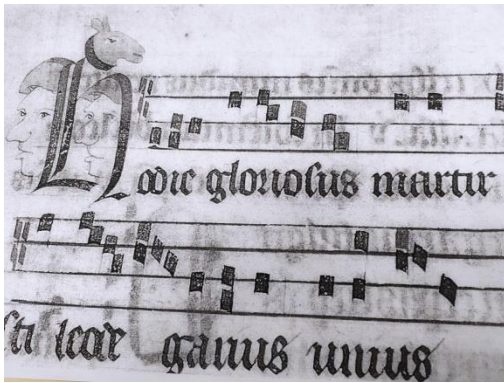 Hodie gloriosus martir
sti leode garius unius